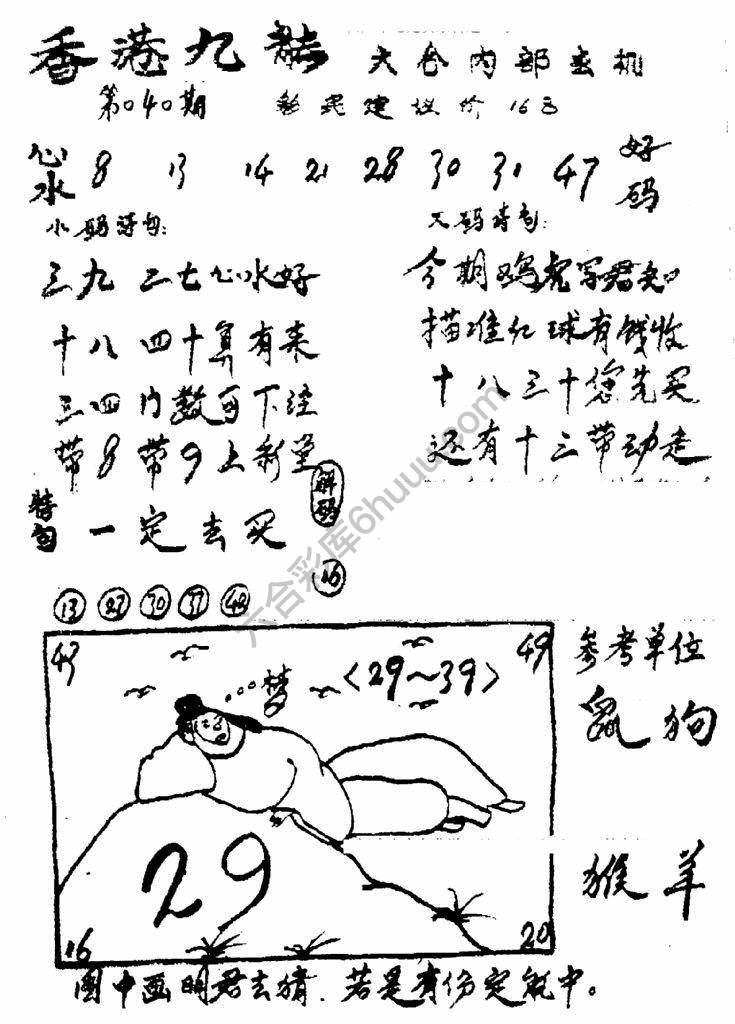 香港九龙 六合内部玄机
第040期 彩民建议价16元
心水 8 13 14 21 28 30 31 47 好码
小码诗句:
三九二七心水好
十八四十算有来
三四门数可下注
带8带9上彩堂
大码诗句:
今期鸡虎写君知
描准红球有钱收
十八三十您先买
还有十三带动走
特句 一定去买
解码
16
13 27 30 37 42
43 49
梦
〈29~39〉
29
16 20
参考单位
鼠 狗
猴 羊
图中画明君去猜.若是有份定能中。
六合彩库6huuu.com